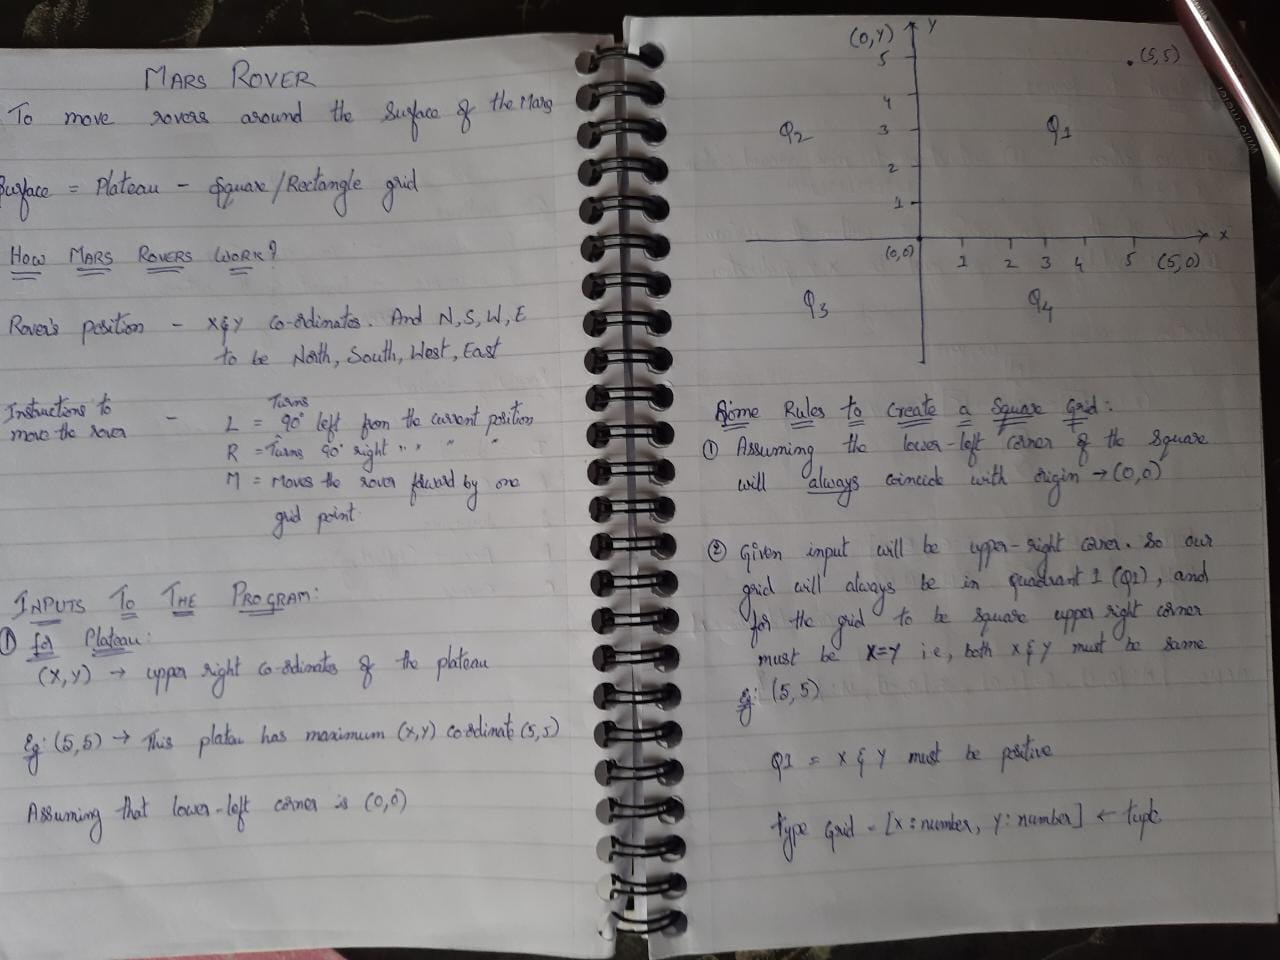 MARS ROVER
To move rovers around the surface of the Mars
Surface = Plateau - Square/Rectangle grid
HOW MARS ROVERS WORK?
Rover's position - X & Y co-ordinates. And N, S, W, E
to be North, South, West, East
Instructions to
move the rover -
Turns
L = 90° left from the current position
R = Turns 90° right " " " "
M = Moves the rover forward by one
grid point.
INPUTS TO THE PROGRAM:
① for Plateau:
(X, Y) → upper right co-ordinates of the plateau
Eg: (5,5) → This plateau has maximum (X,Y) coordinate (5,5)
Assuming that lower-left corner is (0,0)
(0,Y) Y
5 .(5,5)
4
Q2 3 Q1
2
1
(0,0) 1 2 3 4 5 (5,0) X
Q3 Q4
Some Rules to Create a Square Grid:
① Assuming the lower-left corner of the square
will always coincide with origin → (0,0)
② Given input will be upper-right corner. So our
grid will always be in quadrant 1 (Q1), and
for the grid to be square upper right corner
must be X=Y i.e, both X & Y must be same
Eg: (5,5)
Q1 = X & Y must be positive
type Grid = [X: number, Y: number] ← tuple